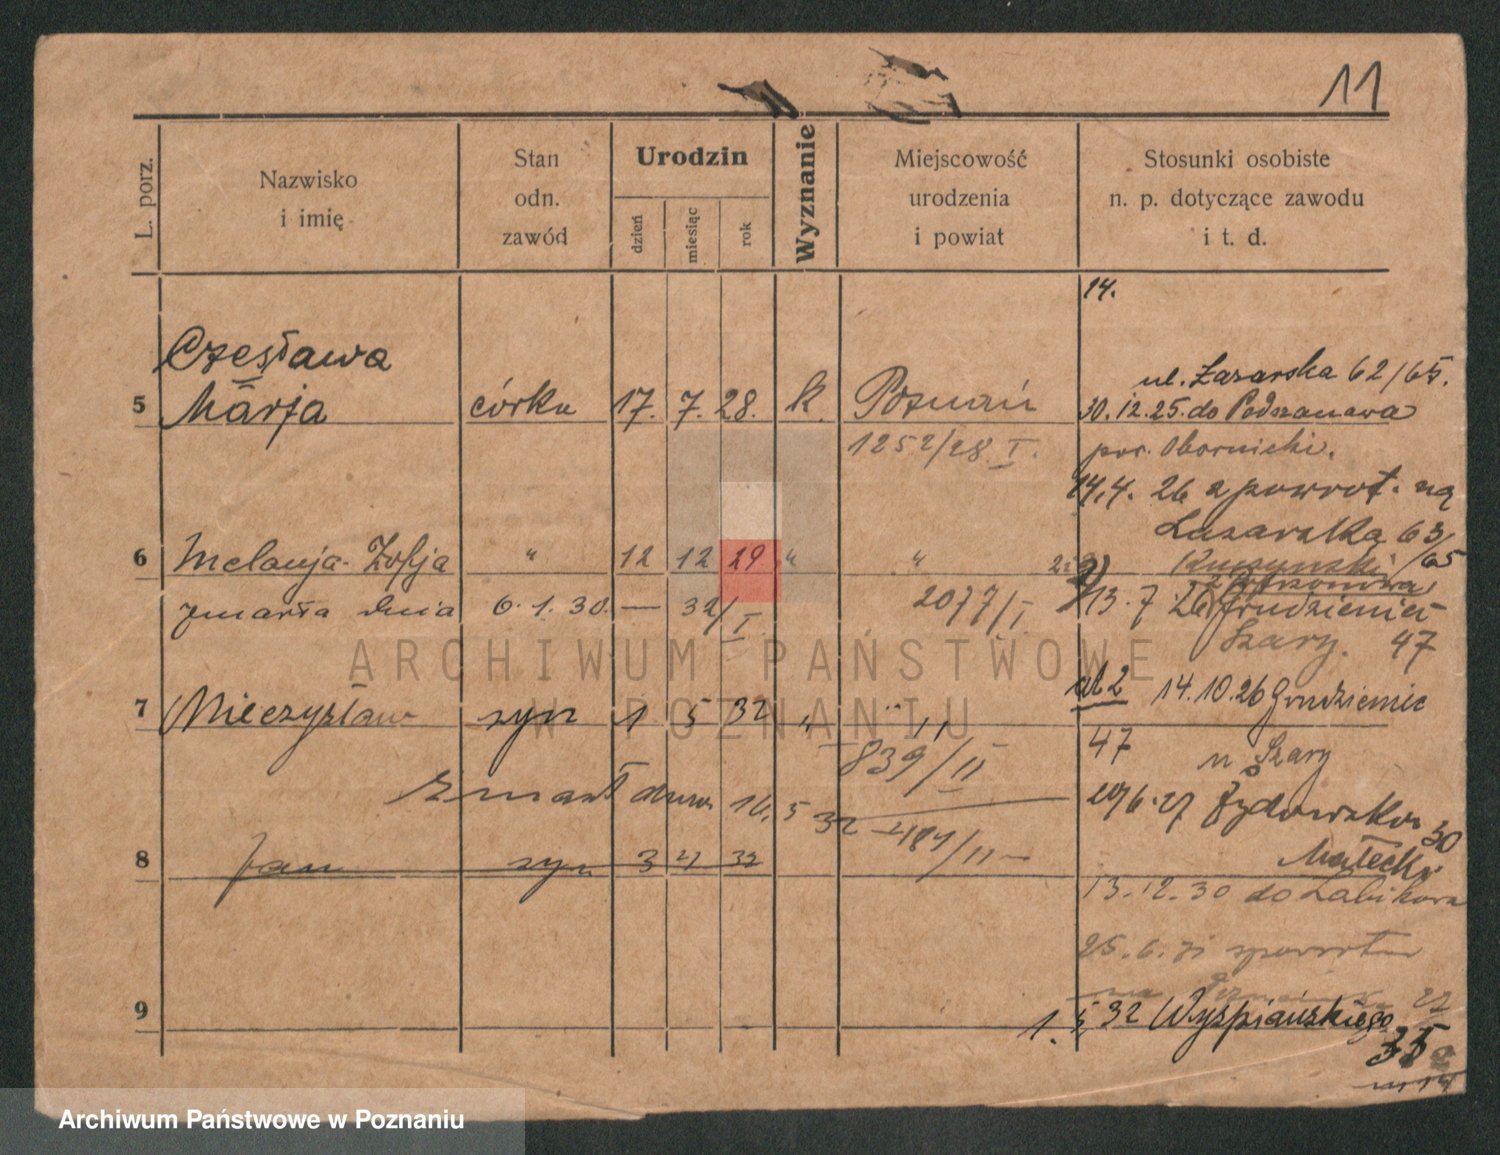 11
L. porz.
Nazwisko
i imię
Stan
odn.
zawód
Urodzin
dzień
miesiąc
rok
Wyznanie
Miejscowość
urodzenia
i powiat
Stosunki osobiste
n. p. dotyczące zawodu
i t. d.
14.
Czesława
5 Marja córka 17. 7. 28. k. Poznań
1252/28 I.
ul. Łazarska 62/65.
30.12.25. do
pow. Obornicki.
14.4. 26 z powrot. na
Łazarska 63/65
6 Melanja Zofja " 12 12 29 " "
zmarła dnia 6. 1. 30. — 32/I
2077/I
13. 7 26 Grudzieniec
Szary. 47
7 Mieczysław syn 1 5 32 " "
839/II
14.10.26 Grudzieniec
47 u Szary
zmarł dnia 10. 5 32
Żydowska 30
Małecki
8 Jan syn 3 32
13.12.30 do
25.6.31
9
1. 5 32 Wyspiańskiego
ARCHIWUM PAŃSTWOWE
W POZNANIU
Archiwum Państwowe w Poznaniu